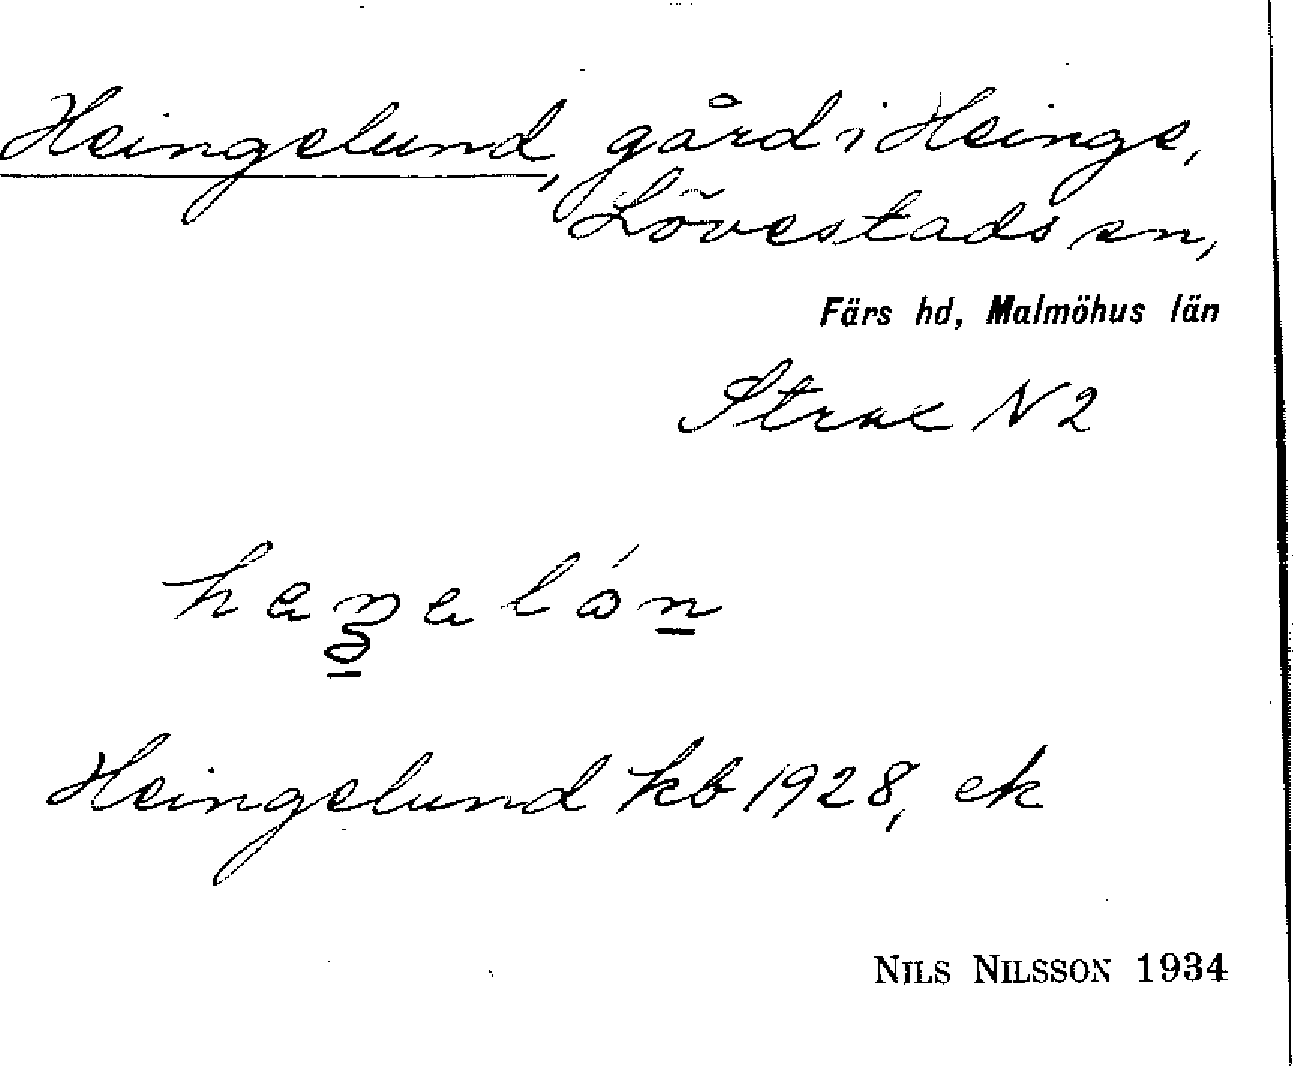 Heingelund, gård i Heinge,
Lövestads sn,
Färs hd, Malmöhus län
Strax N 2
Heingelund kb 1928, ek
NILS NILSSON 1934